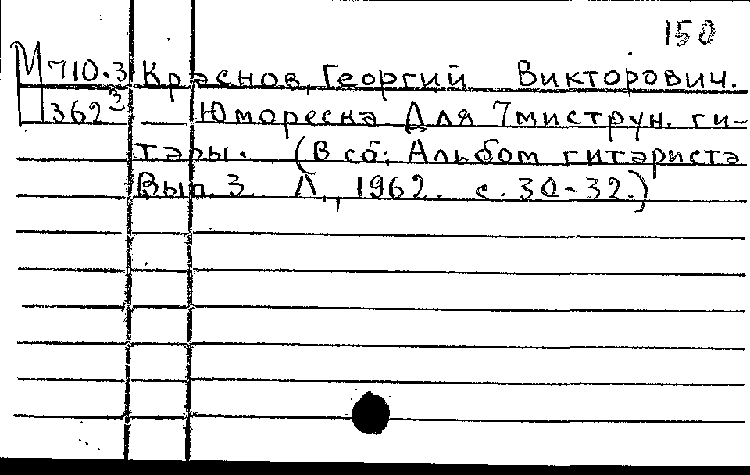 150
М 710.3 Краснов, Георгий Викторович.
362 3 Юмореска Для 7миструн. ги-
тары. (В сб: Альбом гитариста
Вып. 3. Л., 1962. с. 30-32.)